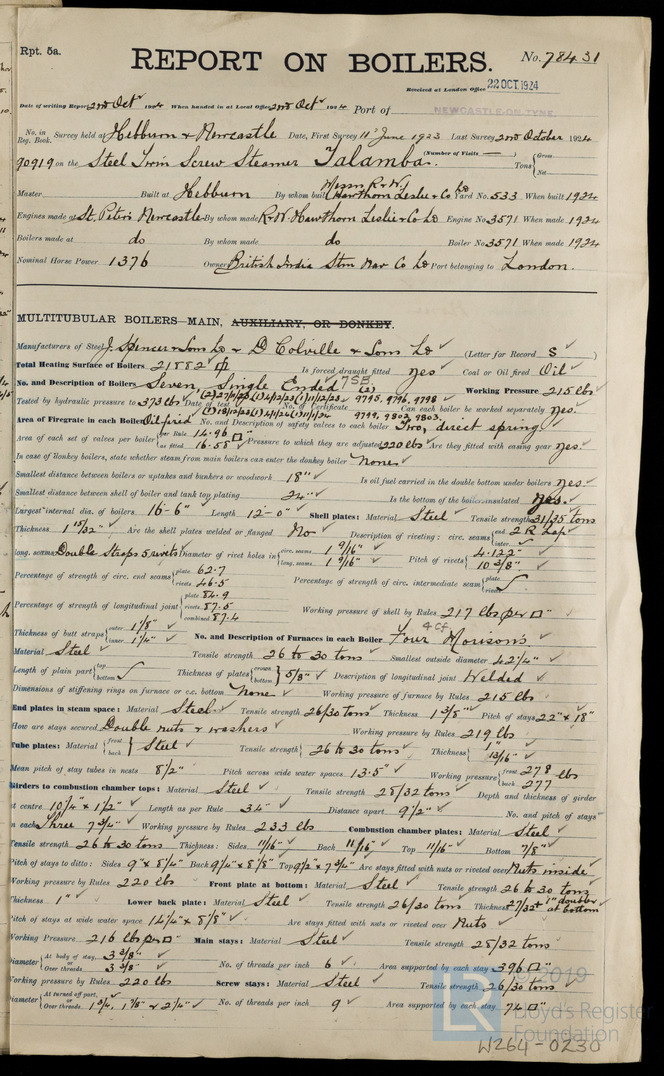 Rpt. 5a.
REPORT ON BOILERS.
No. 78431
Received at London Office 22 OCT. 1924
Date of writing Report 2nd Oct 1924 When handed in at Local Office 2nd Oct 1924 Port of NEWCASTLE-ON-TYNE
No. in Reg. Book. Survey held at Hebburn & Newcastle Date, First Survey 11th June 1923 Last Survey 2nd October 1924
90919 on the Steel Twin Screw Steamer Talamba. (Number of Visits) Tons { Gross Net
Master Built at Hebburn By whom built Messrs R & W. Hawthorn Leslie & Co Ld Yard No. 533 When built 1924
Engines made at St. Peters Newcastle By whom made R & W Hawthorn Leslie & Co Ld Engine No. 3571 When made 1924
Boilers made at do By whom made do Boiler No. 3571 When made 1924
Nominal Horse Power 1376 Owners British India Stm Nav Co Ld Port belonging to London.
MULTITUBULAR BOILERS—MAIN, AUXILIARY, OR DONKEY.
Manufacturers of Steel J. Spencer & Sons Ld & D Colville & Sons Ld (Letter for Record S)
Total Heating Surface of Boilers 21882 Is forced draught fitted yes Coal or Oil fired Oil
No. and Description of Boilers Seven, Single Ended 7SB Working Pressure 215 lbs
Tested by hydraulic pressure to 373 lbs Date of test No. of Certificate 9795, 9796, 9798 9799, 9802, 9803. Can each boiler be worked separately Yes.
Area of Firegrate in each Boiler Oil fired No. and Description of safety valves to each boiler Two, direct spring
Area of each set of valves per boiler { per Rule 14.96 as fitted 16.58 Pressure to which they are adjusted 220 lbs Are they fitted with easing gear yes.
In case of donkey boilers, state whether steam from main boilers can enter the donkey boiler None
Smallest distance between boilers or uptakes and bunkers or woodwork 18" Is oil fuel carried in the double bottom under boilers yes.
Smallest distance between shell of boiler and tank top plating 24" Is the bottom of the boiler insulated yes.
Largest internal dia. of boilers 16-6" Length 12-0" Shell plates: Material Steel Tensile strength 31/35 tons
Thickness 1 15/32" Are the shell plates welded or flanged No Description of riveting: circ. seams { end 2 R Lap inter.
long. seams Double Straps 5 rivets Diameter of rivet holes in { circ. seams 1 9/16" long. seams 1 9/16" Pitch of rivets { 4.122" 10 3/8"
Percentage of strength of circ. end seams { plate 62.7 rivets 46.5 Percentage of strength of circ. intermediate seam { plate rivets
Percentage of strength of longitudinal joint { plate 84.9 rivets 87.5 combined 87.4 Working pressure of shell by Rules 217 lbs per □"
Thickness of butt straps { outer 1 1/8" inner 1 1/4" No. and Description of Furnaces in each Boiler Four Morisons 4 cf
Material Steel Tensile strength 26 to 30 tons Smallest outside diameter 42 1/4"
Length of plain part { top bottom Thickness of plates { crown bottom } 5/8" Description of longitudinal joint Welded
Dimensions of stiffening rings on furnace or c.c. bottom None Working pressure of furnace by Rules 215 lbs
End plates in steam space: Material Steel Tensile strength 26/30 tons Thickness 1 3/8" Pitch of stays 22" x 18"
How are stays secured Double nuts & washers Working pressure by Rules 219 lbs
Tube plates: Material { front back } Steel Tensile strength { 26 to 30 tons Thickness { 1" 13/16"
Mean pitch of stay tubes in nests 8 1/2" Pitch across wide water spaces 13.5" Working pressure { front 278 back 277 lbs
Girders to combustion chamber tops: Material Steel Tensile strength 28/32 tons Depth and thickness of girder
at centre 10 1/4" x 1 1/2" Length as per Rule 34" Distance apart 9 1/2" No. and pitch of stays
in each Three 7 3/4" Working pressure by Rules 233 lbs Combustion chamber plates: Material Steel
Tensile strength 26 to 30 tons Thickness: Sides 11/16" Back 11/16" Top 11/16" Bottom 7/8"
Pitch of stays to ditto: Sides 9" x 8 1/4" Back 9 1/4" x 8 1/8" Top 9 1/2" x 7 3/4" Are stays fitted with nuts or riveted over Nuts inside
Working pressure by Rules 220 lbs Front plate at bottom: Material Steel Tensile strength 26 to 30 tons
Thickness 1" Lower back plate: Material Steel Tensile strength 26/30 tons Thickness 27/32" 1" doubler at bottom
Pitch of stays at wide water space 14 1/4" x 8 1/8" Are stays fitted with nuts or riveted over Nuts
Working Pressure 216 lbs per □" Main stays: Material Steel Tensile strength 28/32 tons
Diameter { At body of stay, 3 3/8" Over threads. 3 3/8" No. of threads per inch 6 Area supported by each stay 396 □"
Working pressure by Rules 220 lbs Screw stays: Material Steel Tensile strength 26/30 tons
Diameter { At turned off part, or Over threads 1 3/4", 1 7/8" & 2 1/4" No. of threads per inch 9 Area supported by each stay 74 □"
© 2019
Lloyd's Register
Foundation
LR
W264-0230